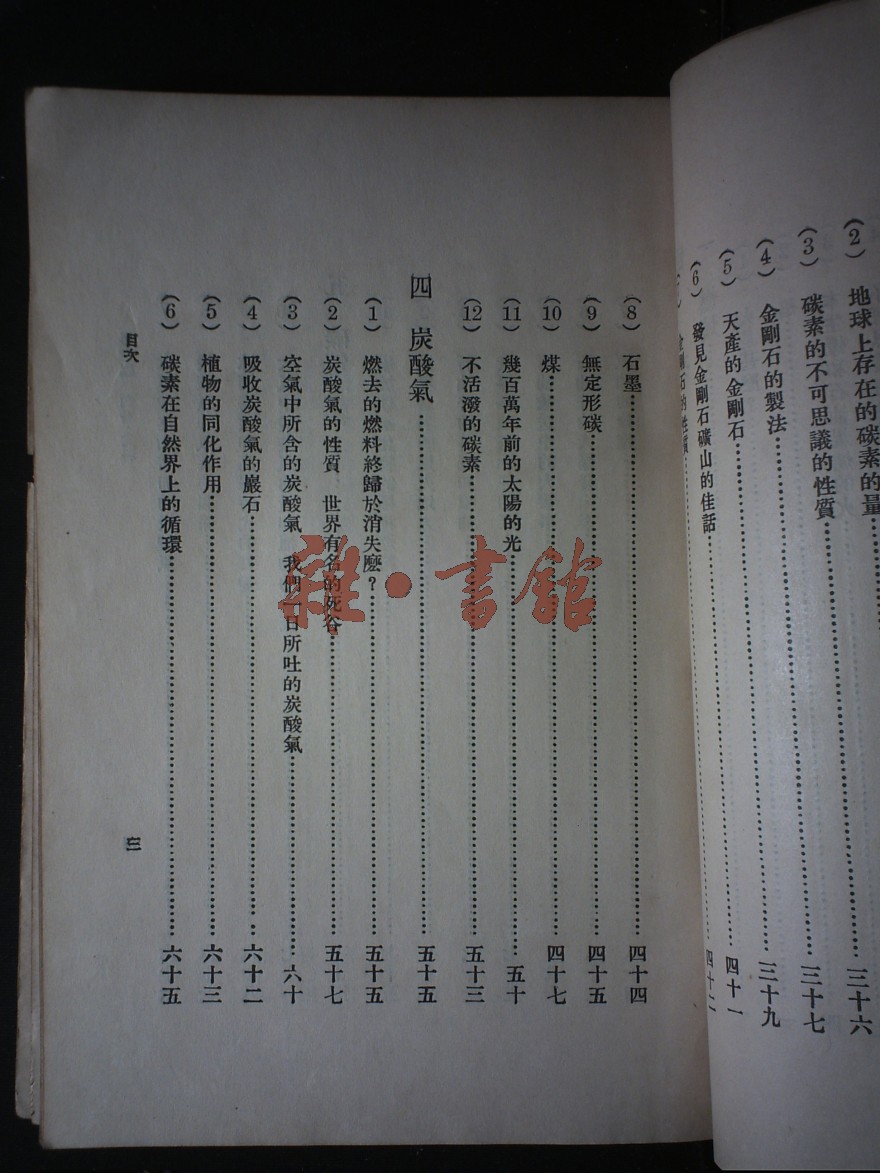 (2) 地球上存在的碳素的量………三十六
(3) 碳素的不可思議的性質………三十七
(4) 金剛石的製法………三十九
(5) 天產的金剛石………四十一
(6) 發見金剛石礦山的佳話………四十二
金剛石的性質………
(8) 石墨………四十四
(9) 無定形碳………四十五
(10) 煤………四十七
(11) 幾百萬年前的太陽的光………五十
(12) 不活潑的碳素………五十三
四 炭酸氣………五十五
(1) 燃去的燃料終歸於消失麼?………五十五
(2) 炭酸氣的性質 世界有名的死谷………五十七
(3) 空氣中所含的炭酸氣 我們一日所吐的炭酸氣………六十
(4) 吸收炭酸氣的巖石………六十二
(5) 植物的同化作用………六十三
(6) 碳素在自然界上的循環………六十五
目次
三
雜·書館